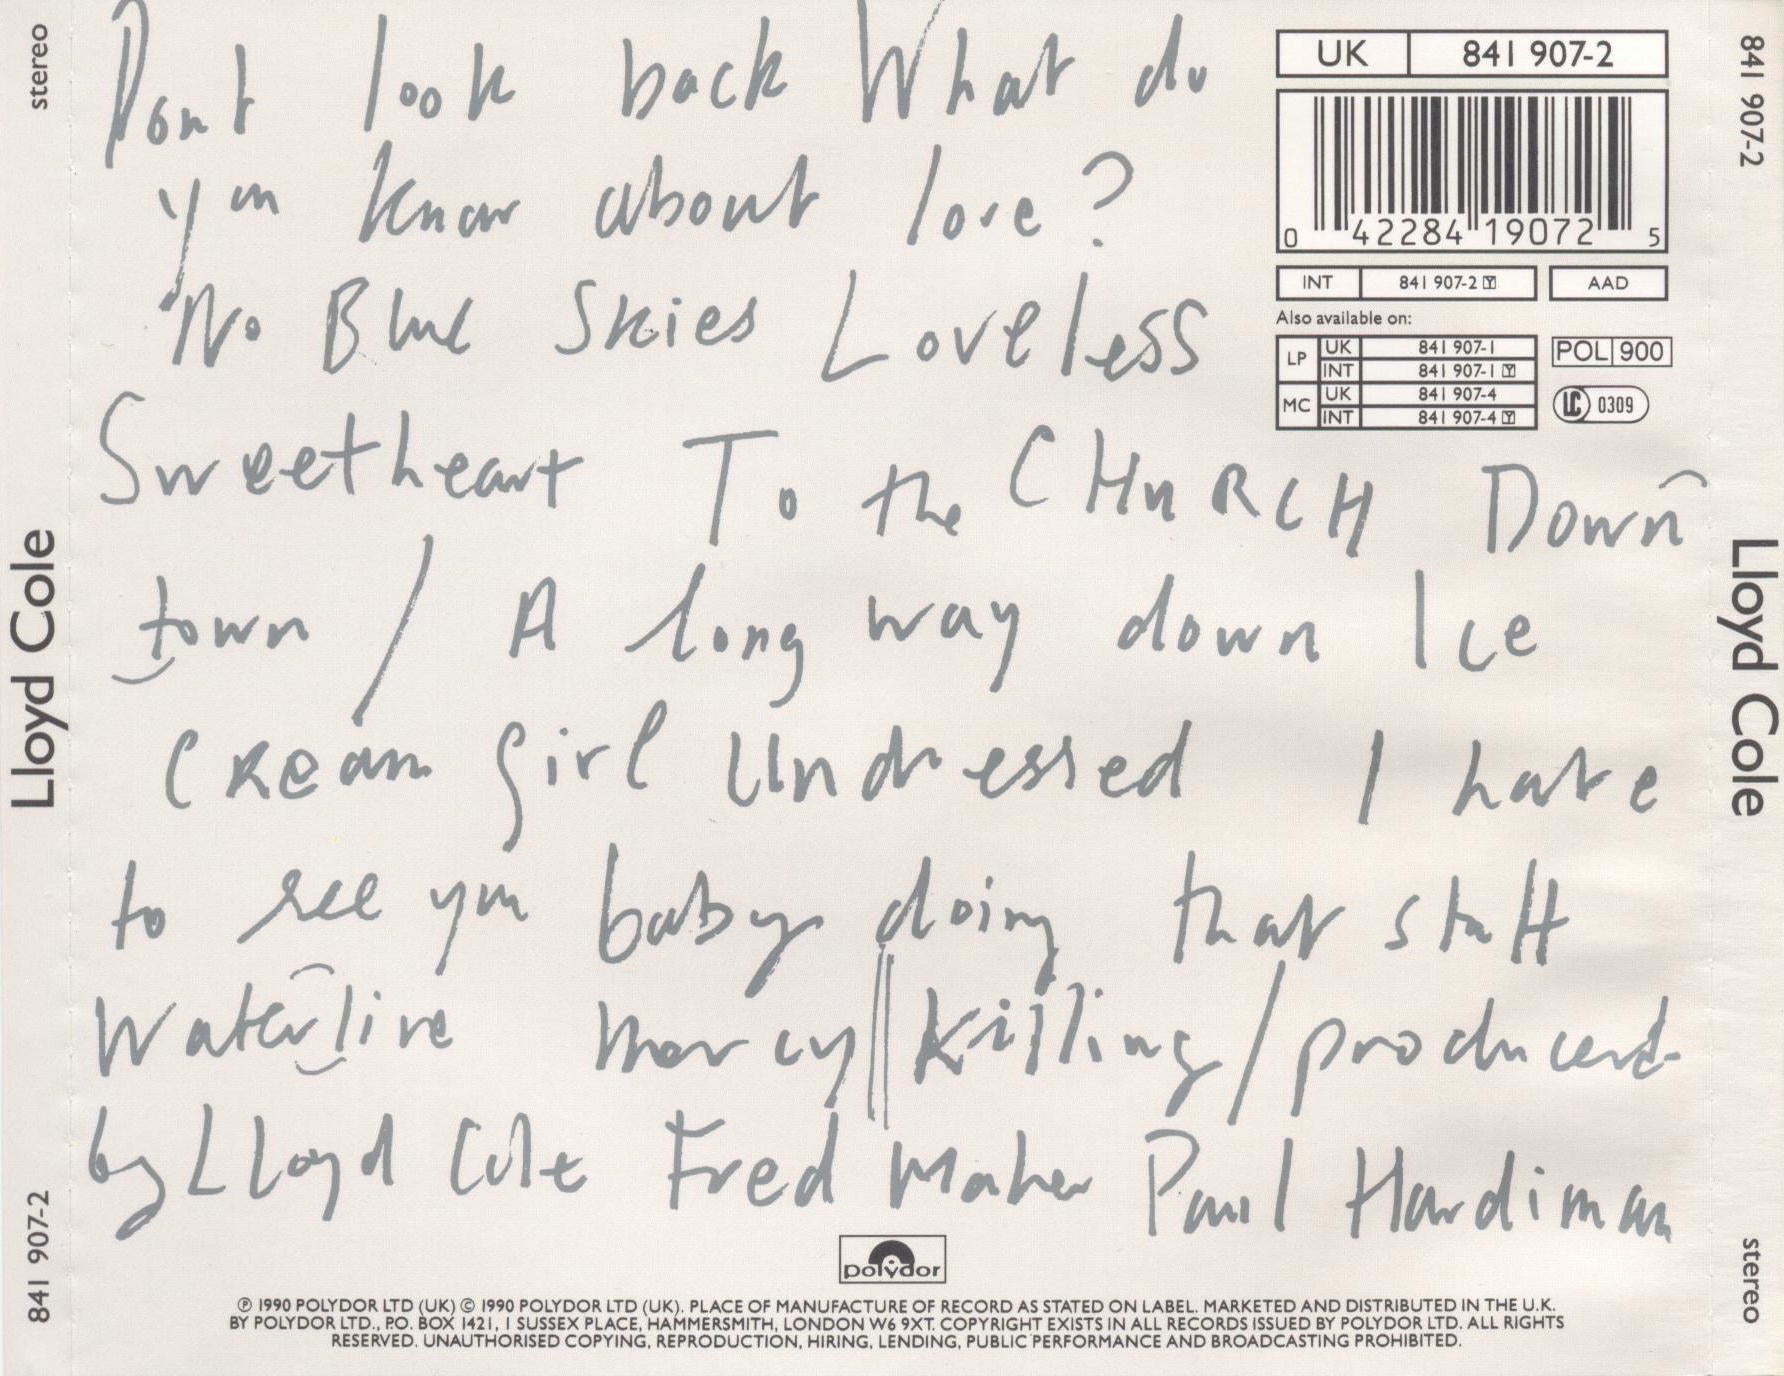 Dont look back What do
you know about love?
No Blue Skies Loveless
Sweetheart To the CHuRCH Down
town / A long way down Ice
Cream Girl Undressed I hate
to see you baby doing that stuff
Waterline Mercy || Killing / produced
by Lloyd Cole Fred Maher Paul Hardiman
UK 841 907-2
0 42284 19072 5
INT 841 907-2 Y AAD
Also available on:
LP UK 841 907-1
INT 841 907-1 Y
MC UK 841 907-4
INT 841 907-4 Y
POL 900
LC 0309
stereo
Lloyd Cole
841 907-2
841 907-2
Lloyd Cole
stereo
polydor
℗ 1990 POLYDOR LTD (UK) © 1990 POLYDOR LTD (UK). PLACE OF MANUFACTURE OF RECORD AS STATED ON LABEL. MARKETED AND DISTRIBUTED IN THE U.K.
BY POLYDOR LTD., P.O. BOX 1421, 1 SUSSEX PLACE, HAMMERSMITH, LONDON W6 9XT. COPYRIGHT EXISTS IN ALL RECORDS ISSUED BY POLYDOR LTD. ALL RIGHTS
RESERVED. UNAUTHORISED COPYING, REPRODUCTION, HIRING, LENDING, PUBLIC PERFORMANCE AND BROADCASTING PROHIBITED.